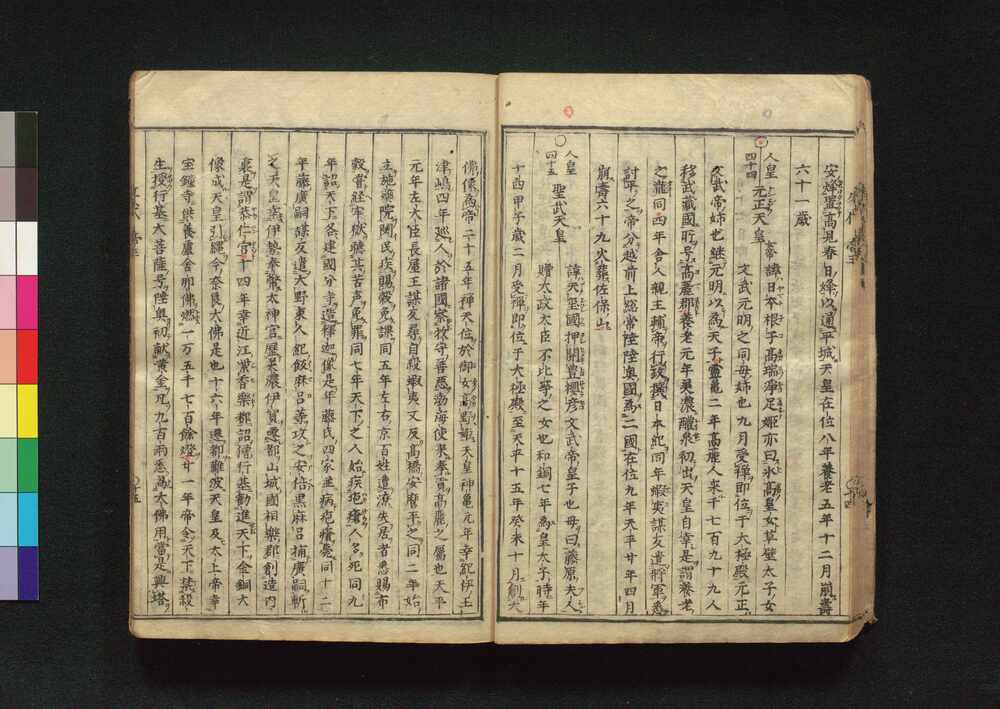 安燁置高見春日絳以通平城天皇在位八年養老五年十二月崩壽
六十一歳
人皇四十四 元正天皇 帝諱日本根子高瑞淨足姬亦曰氷高皇女草壁太子女
文武元明之同母姉也九月受禅即位于大極殿元正
文武帝姉也継元明以為天子靈亀二年高麗人来千七百九十九人
移武蔵國所号高麗郡養老元年美濃醴泉初出天皇自幸是謂養老
之瀧同四年舎人親王輔帝行政撰日本紀同年蝦夷謀反遣將軍悉
討平之帝分越前上総常陸陸奥國為二國在位九年天平廿年四月
崩壽六十九火葬佐保山
人皇四十五 聖武天皇 諱天璽國押開豊櫻彦文武帝皇子也母曰藤原夫人
贈太政太臣不比等之女也和銅七年為皇太子時年
十四甲子歳二月受禅即位于大極殿至天平十五年癸未十月創大
像儀為帝二十五年禅天位於御女高野姫天皇神亀元年幸紀伊玉
津嶋四年巡人於諸國察牧守善悪渤海使来奉貢高麗之屬也天平
元年左大臣長屋王謀反尋自殺蝦夷又反高橋安麿平之同二年始
立施藥院閲民疾賜穀免課同五年左右京百姓遭潦失居者悉賜布
穀嘗経牢獄聴其苦声免罪同七年天下之人始疾疱瘡人多死同九
年詔天下各建國分寺造釋迦像是年藤氏四家並病疱瘡薨同十二
年藤廣嗣謀反遣大野東人紀飯麻呂等攻之安倍黒麻呂捕廣嗣斬
之天皇幸伊勢奉幣太神宮歴美濃伊賀遷都山城國相樂郡創造内
裏是謂恭仁宮十四年幸近江紫香樂郡詔僧行基勸進天下金銅大
像成天皇引縄今奈良大佛是也十六年遷都難波天皇及太上帝幸
金鐘寺供養盧舎那佛燃一万五千七百餘燈廿一年帝令天下禁殺
生授行基大菩薩号陸奥初献黄金凡九百両悉為大佛用當是興塔